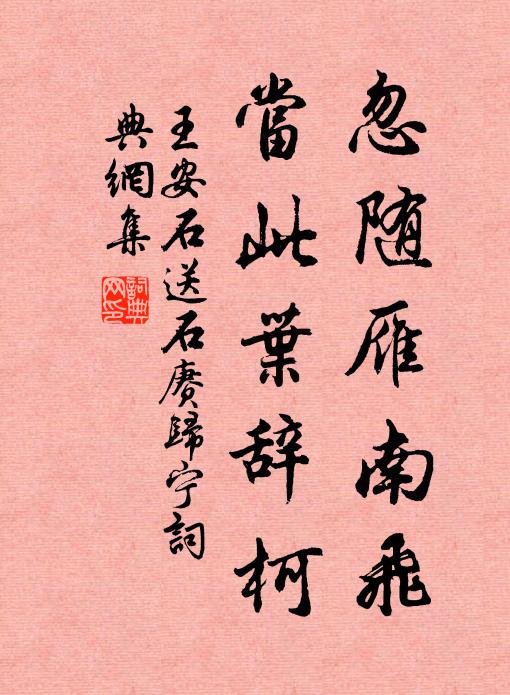 忽随雁南飛
當此葉辞柯
王安石送石赓歸宁詞
典網集
詞典
网印